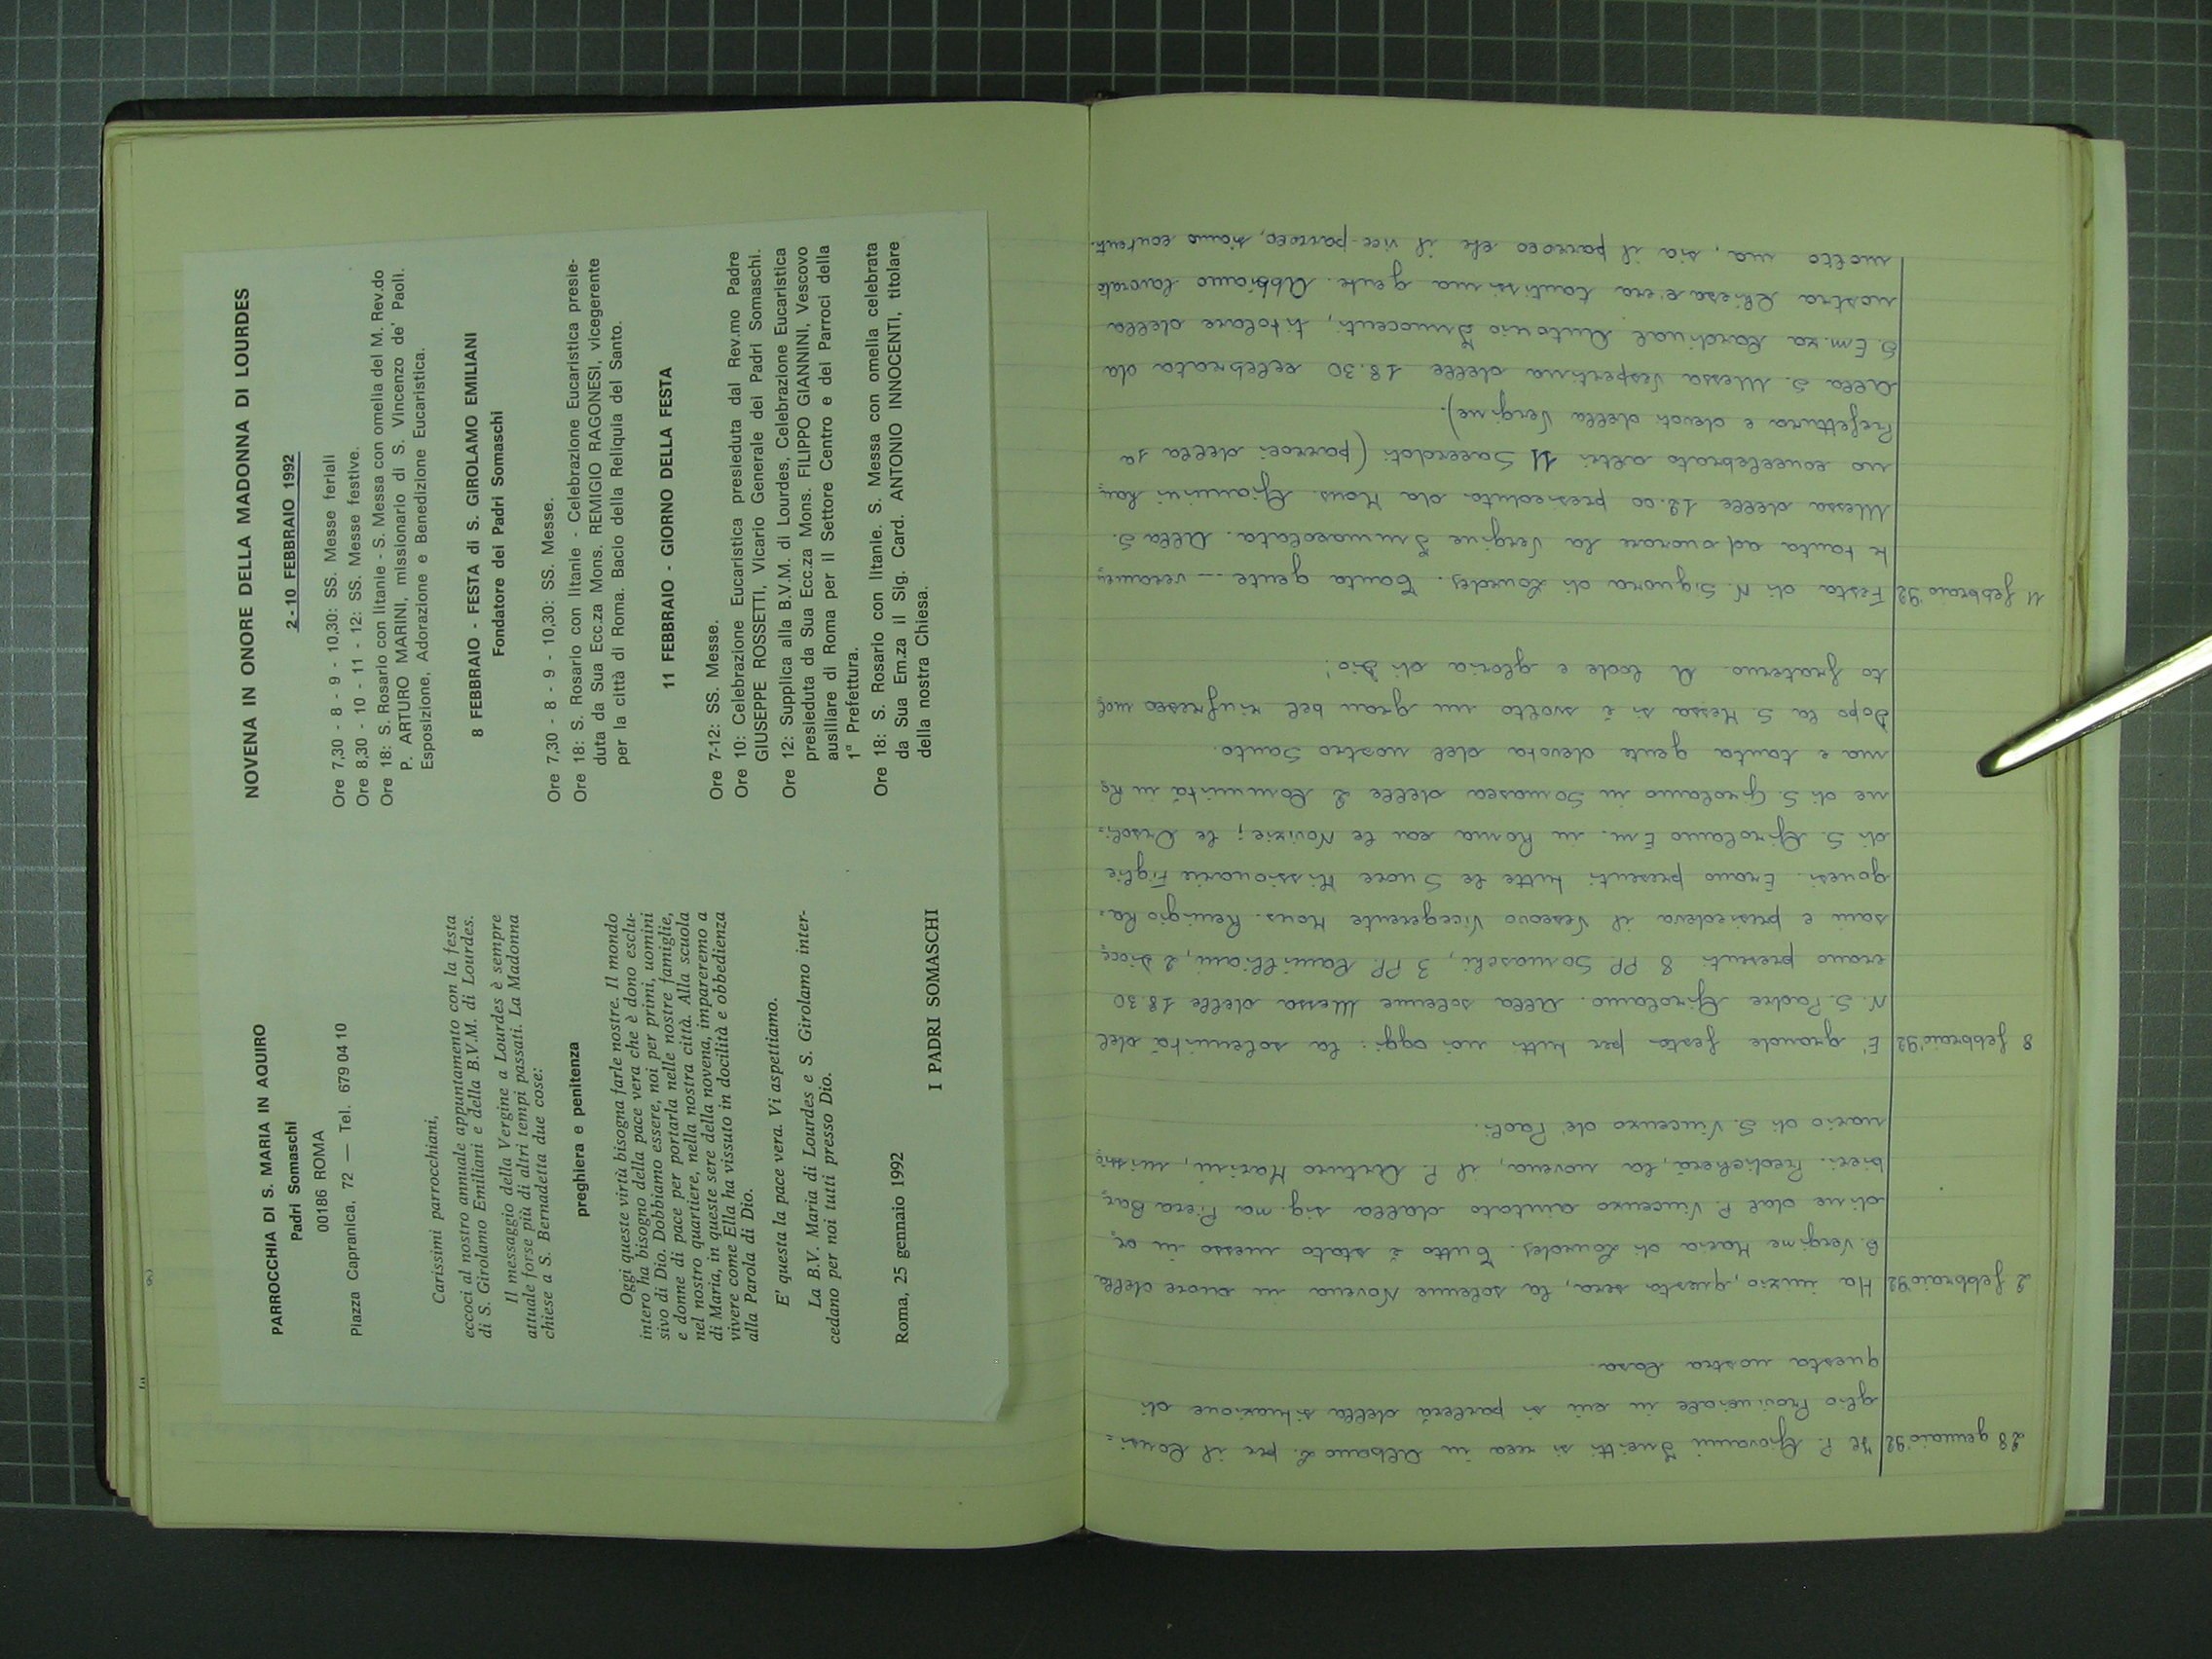 PARROCCHIA DI S. MARIA IN AQUIRO
Padri Somaschi
00186 ROMA
Piazza Capranica, 72 — Tel. 679 04 10
Carissimi parrocchiani,
eccoci al nostro annuale appuntamento con la festa
di S. Girolamo Emiliani e della B.V.M. di Lourdes.
Il messaggio della Vergine a Lourdes è sempre
attuale forse più di altri tempi passati. La Madonna
chiese a S. Bernadetta due cose:
preghiera e penitenza
Oggi queste virtù bisogna farle nostre. Il mondo
intero ha bisogno della pace vera che è dono esclu-
sivo di Dio. Dobbiamo essere, noi per primi, uomini
e donne di pace per portarla nelle nostre famiglie,
nel nostro quartiere, nella nostra città. Alla scuola
di Maria, in queste sere della novena, impareremo a
vivere come Ella ha vissuto in docilità e obbedienza
alla Parola di Dio.
E' questa la pace vera. Vi aspettiamo.
La B.V. Maria di Lourdes e S. Girolamo inter-
cedano per noi tutti presso Dio.
Roma, 25 gennaio 1992
I PADRI SOMASCHI
NOVENA IN ONORE DELLA MADONNA DI LOURDES
2 - 10 FEBBRAIO 1992
Ore 7,30 - 8 - 9 - 10,30: SS. Messe feriali
Ore 8,30 - 10 - 11 - 12: SS. Messe festive.
Ore 18: S. Rosario con litanie - S. Messa con omelia del M. Rev.do
P. ARTURO MARINI, missionario di S. Vincenzo de' Paoli.
Esposizione, Adorazione e Benedizione Eucaristica.
8 FEBBRAIO - FESTA di S. GIROLAMO EMILIANI
Fondatore dei Padri Somaschi
Ore 7,30 - 8 - 9 - 10,30: SS. Messe.
Ore 18: S. Rosario con litanie - Celebrazione Eucaristica presie-
duta da Sua Ecc.za Mons. REMIGIO RAGONESI, vicegerente
per la città di Roma. Bacio della Reliquia del Santo.
11 FEBBRAIO - GIORNO DELLA FESTA
Ore 7-12: SS. Messe.
Ore 10: Celebrazione Eucaristica presieduta dal Rev.mo Padre
GIUSEPPE ROSSETTI, Vicario Generale dei Padri Somaschi.
Ore 12: Supplica alla B.V.M. di Lourdes, Celebrazione Eucaristica
presieduta da Sua Ecc.za Mons. FILIPPO GIANNINI, Vescovo
ausiliare di Roma per il Settore Centro e dei Parroci della
1ª Prefettura.
Ore 18: S. Rosario con litanie. S. Messa con omelia celebrata
da Sua Em.za il Sig. Card. ANTONIO INNOCENTI, titolare
della nostra Chiesa.
28 gennaio '92 Il P. Giovanni si reca in Albano L. per il Consi=
glio Provinciale in cui si parlerà della situazione di
questa nostra Casa.
2 febbraio '92 Ha inizio, questa sera, la solenne Novena in onore della
B. Vergine Maria di Lourdes. Tutto è stato messo in or,
dine dal P. Vincenzo aiutato dalla sig.ma Piera Bar,
bieri. Predicherà, la novena, il P. Arturo Marini, missio,
nario di S. Vincenzo de' Paoli.
8 febbraio '92 E' grande festa per tutti noi oggi: la solennità del
N. S. Padre Girolamo. Alla solenne Messa delle 18.30
erano presenti 8 PP. Somaschi, 3 PP. Camilliani, 2 Dioce,
sani e presiedeva il Vescovo Vicegerente Mons. Remigio Ra=
gonesi. Erano presenti tutte le Suore Missionarie Figlie
di S. Girolamo Em. in Roma con le Novizie; le Orsoli=
ne di S. Girolamo in Somasca delle 2 Comunità in Ro,
ma e tanta gente devota del nostro Santo.
Dopo la S. Messa si è svolto un gran bel rinfresco mol,
to fraterno. A lode e gloria di Dio!
11 febbraio '92 Festa di N. Signora di Lourdes. Tanta gente -- veramen,
te tanta ad onorare la Vergine Immacolata. Alla S.
Messa delle 12.00 presieduta da Mons. Giannini han,
no concelebrato altri 11 Sacerdoti (parroci della 1a
Prefettura e devoti della Vergine).
Alla S. Messa Vespertina delle 18.30 celebrata da
S. Em.za Cardinal Antonio Innocenti, titolare della
nostra Chiesa c'era tantissima gente. Abbiamo lavorato
molto ma, sia il parroco che il vice-parroco, siamo contenti.